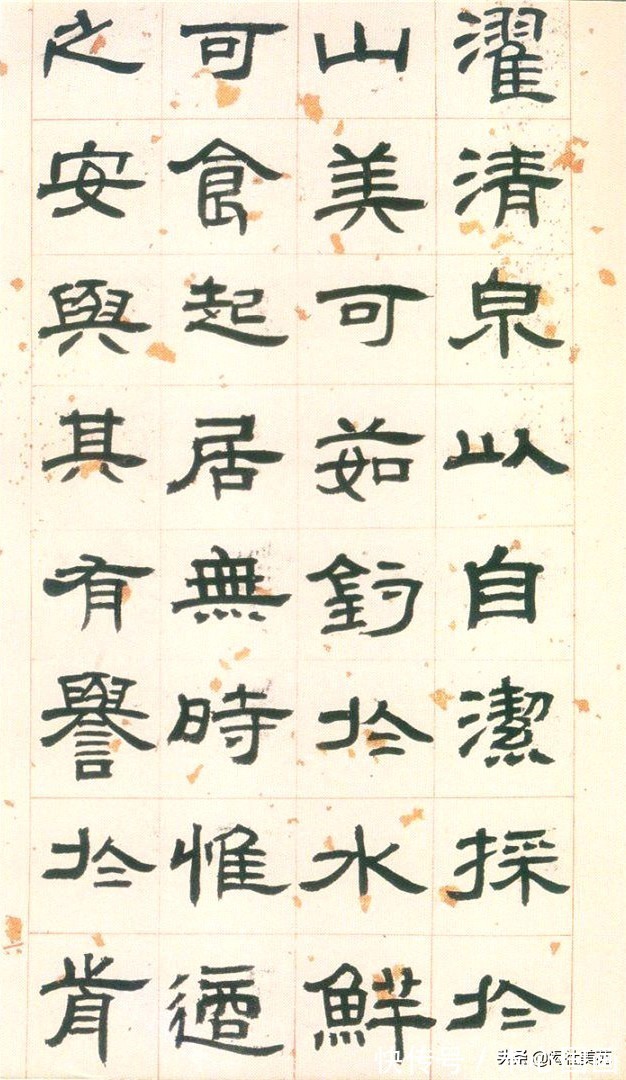 濯清泉以自潔採於
山美可茹釣於水鮮
可食起居無時惟適
之安與其有譽於前
快传号/
头条@